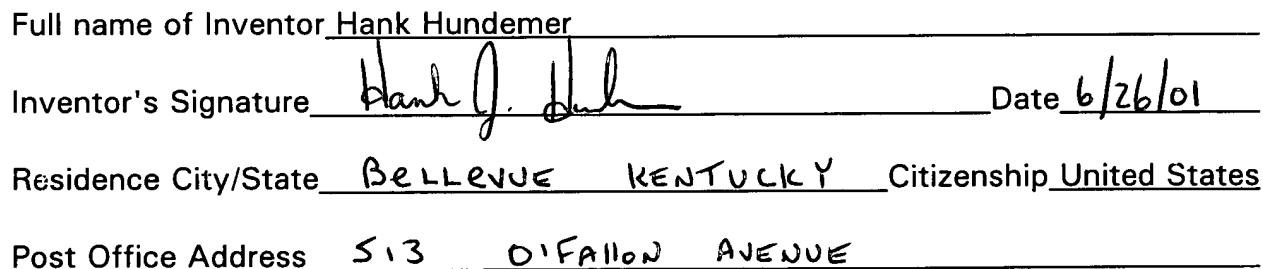 Full name of Inventor Hank Hundemer
Inventor's Signature Hank J. Date 6/26/01
Residence City/State BeLLevue KENTUCKY Citizenship United States
Post Office Address 513 O'FAllON AVENUE